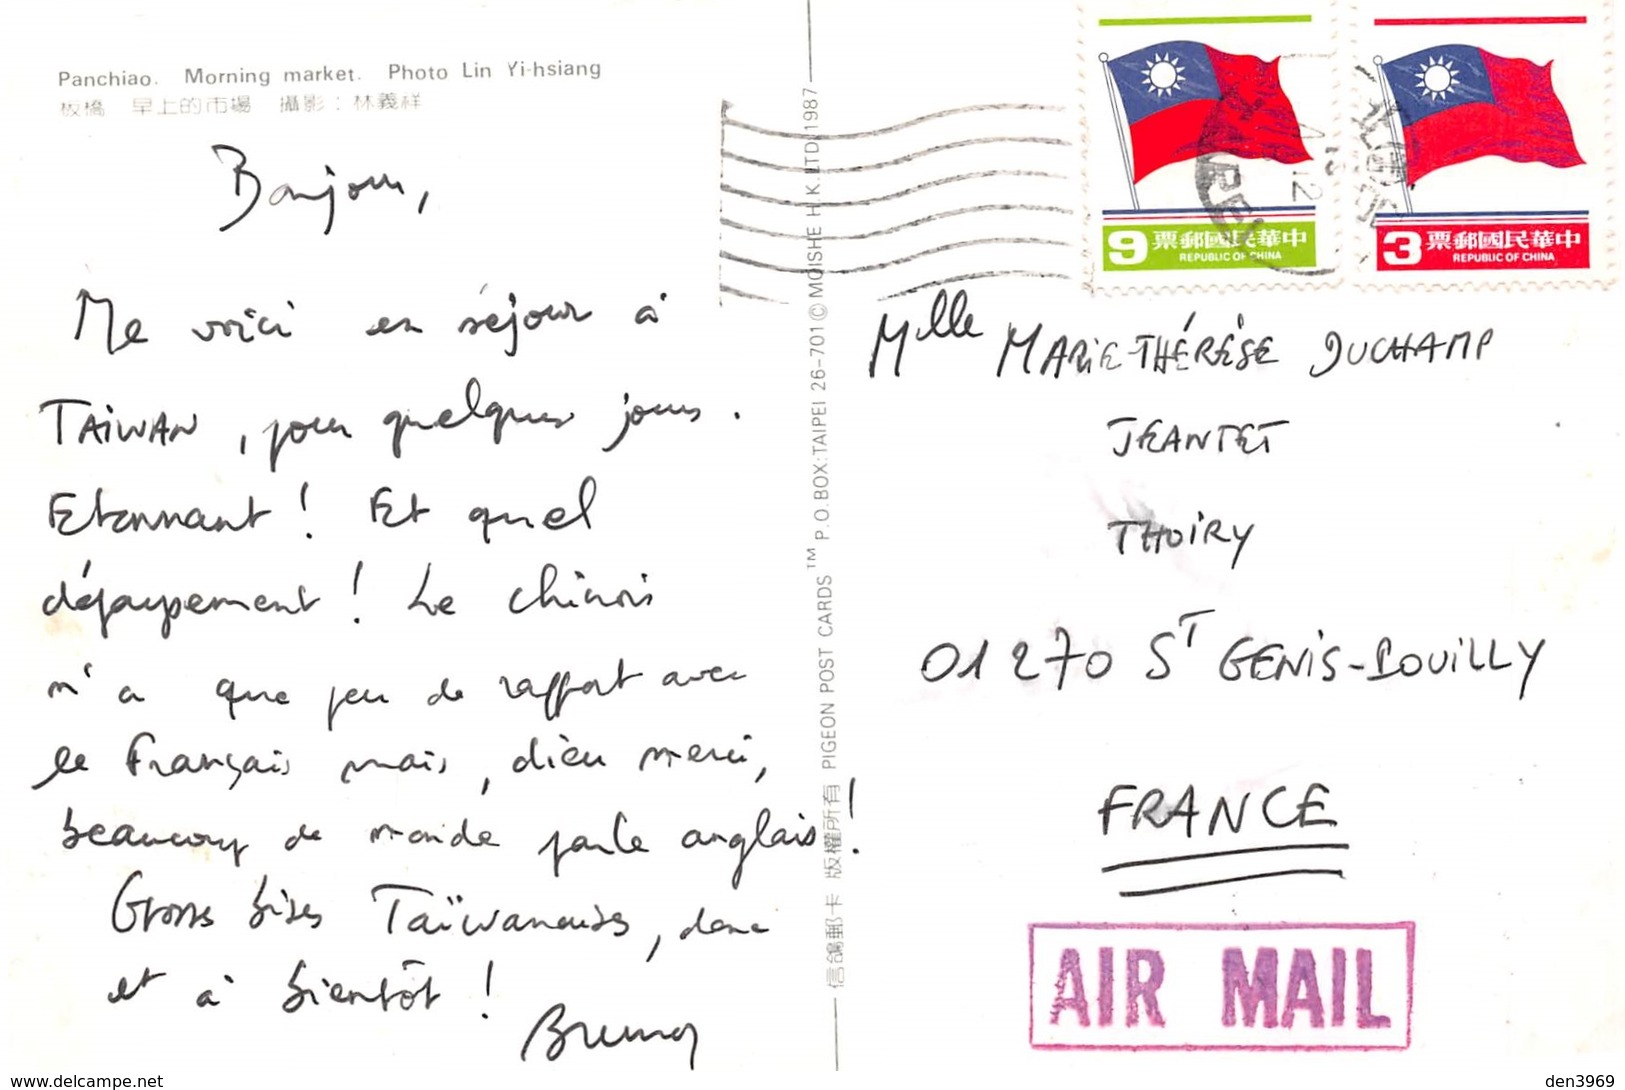 Panchiao. Morning market. Photo Lin Yi-hsiang
板橋 早上的市場 攝影：林義祥
Bonjour,
Me voici en séjour à
TAIWAN, pour quelques jours.
Etonnant ! Et quel
dépaysement ! Le chinois
n'a que peu de rapport avec
le Français mais, dieu merci,
beaucoup de monde parle anglais !
Gross bises Taïwanaises, donc
et à bientôt !
Bruno
信鴿郵卡 版權所有 PIGEON POST CARDS™ P.O.BOX:TAIPEI 26-701 © MOISHE H.K.LTD.1987
9 票郵國民華中
REPUBLIC OF CHINA
3 票郵國民華中
REPUBLIC OF CHINA
Mlle MARIE-THÉRÈSE DUCHAMP
JEANTET
THOIRY
01270 ST GENIS-POUILLY
FRANCE
AIR MAIL
https://www.delcampe.net
den3969